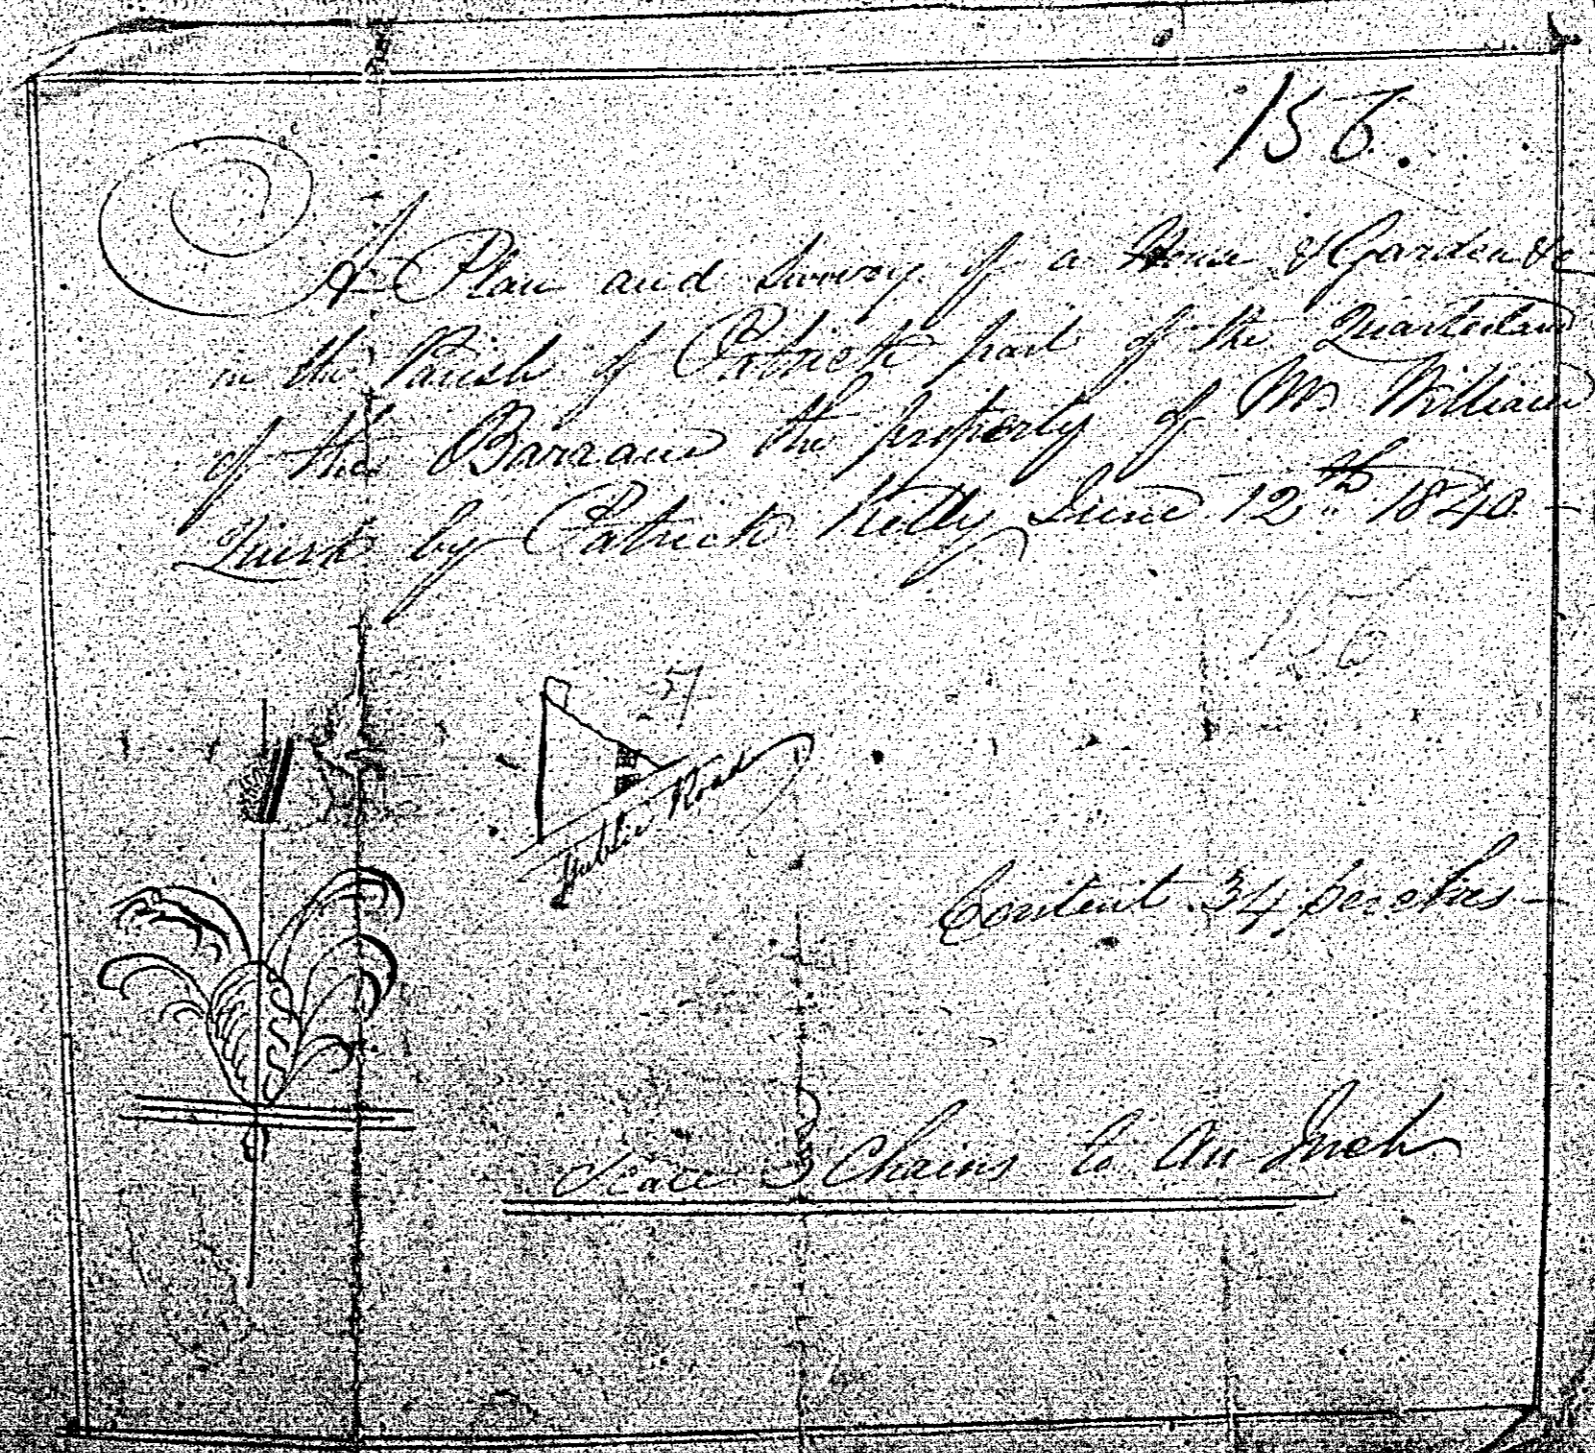 156.
A Plan and Survey of a House & Garden &c
in the Parish of Patrick part of the Quarterland
of the Barraane the property of Mr William
Quirk by Patrick Kelly June 12th 1840
156
57
Public Road
Content 34 perches
Scale 3 Chains to An Inch